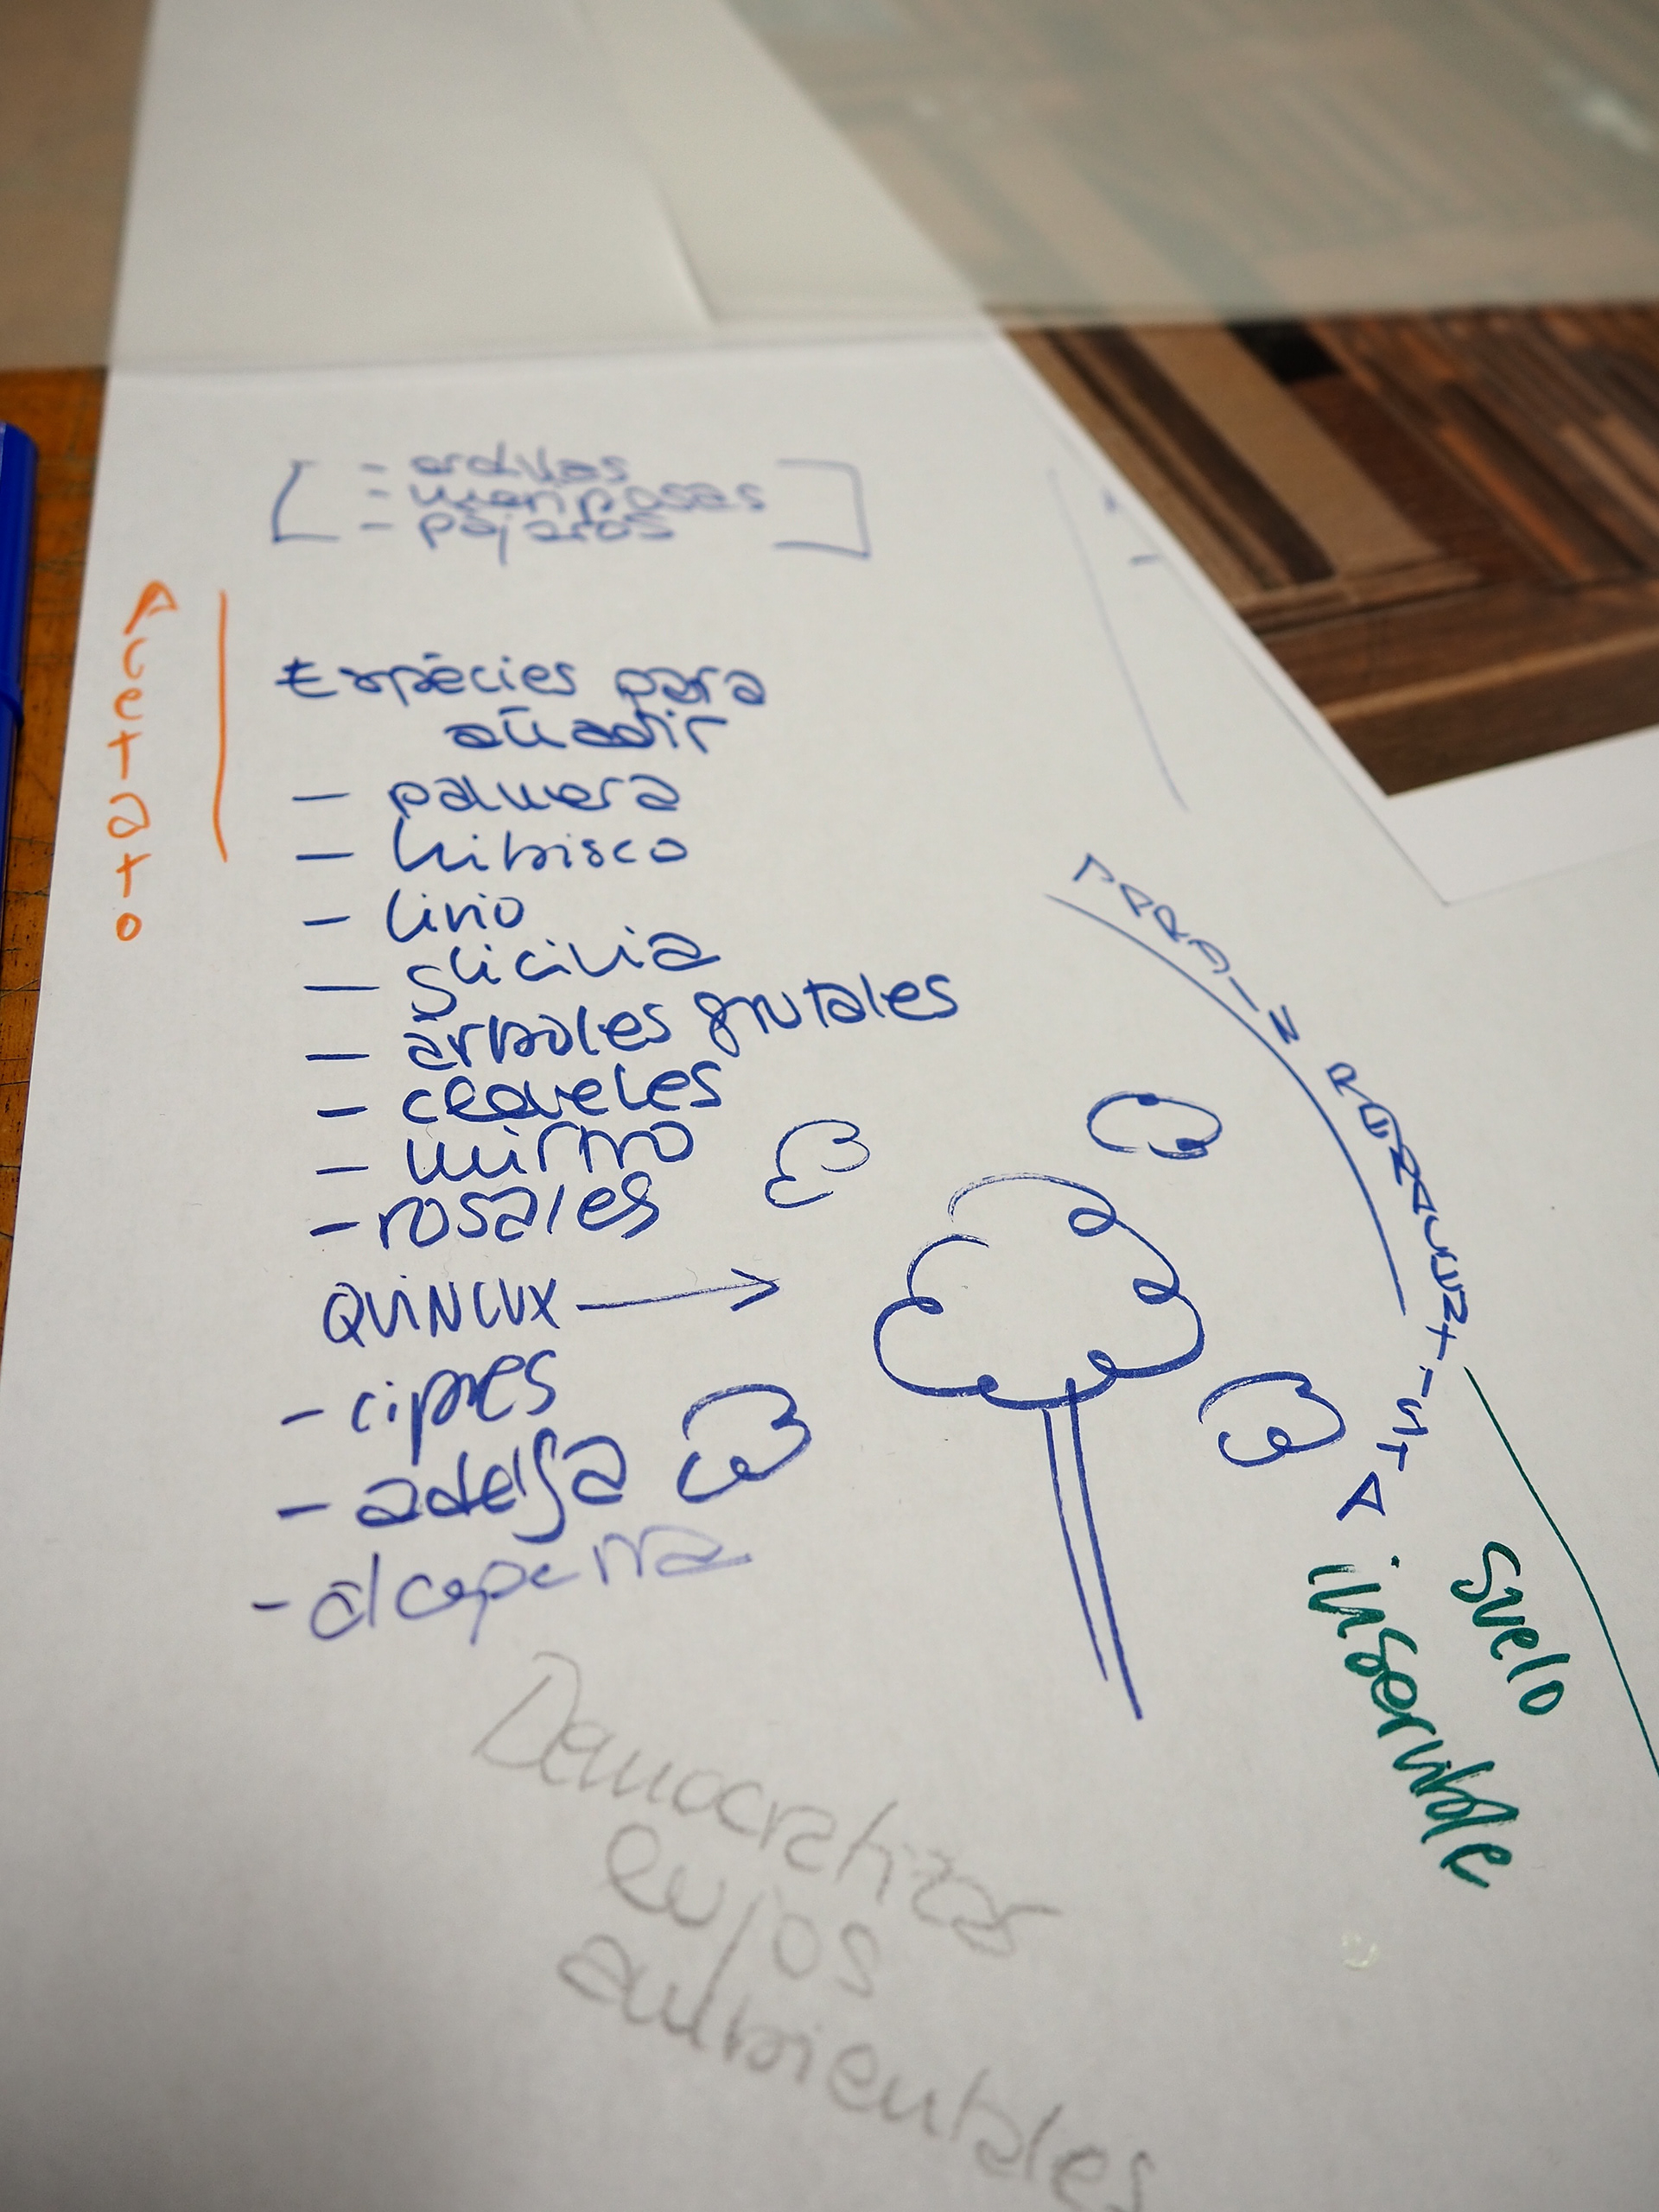 - ardillas
- mariposas
- pájaros
Acetato
Espécies para
añadir
- palmera
- hibisco
- lirio
- glicinia
- árboles frutales
- claveles
- mirto
- rosales
QUiNCUX
- cipres
- adelfa
- alcaperra
JARDIN RENACENTISTA
suelo
inservible
Democratizar
lujos
ambientales